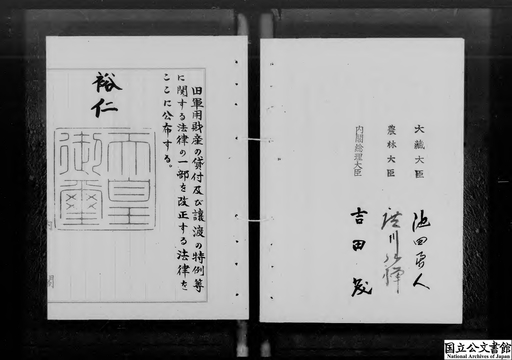 大藏大臣 池田勇人
農林大臣 廣川弘禅
内閣総理大臣 吉田茂
旧軍用財産の貸付及び讓渡の特例等
に関する法律の一部を改正する法律を
ここに公布する。
裕仁
天皇
御璽
国立公文書館
National Archives of Japan